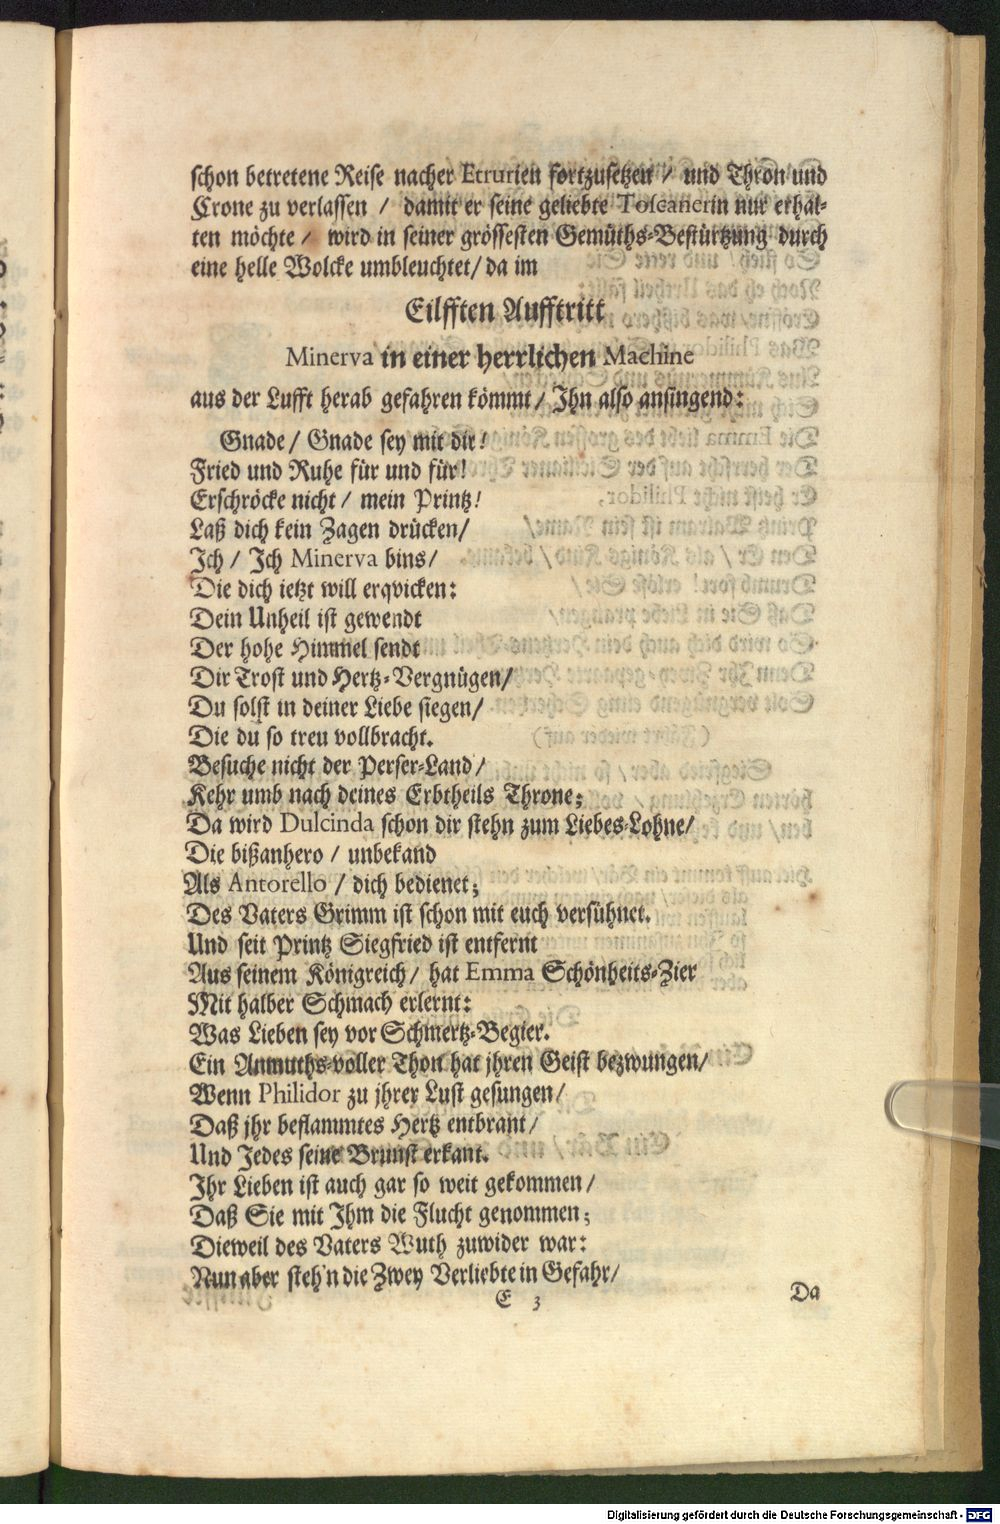 schon betretene Reise nacher Etrurien fortzusetzen / und Thron und
Crone zu verlassen / damit er seine geliebte Toscanerin nur erhal-
ten möchte / wird in seiner grössesten Gemüths-Bestürtzung durch
eine helle Wolcke umbleuchtet / da im
Eilfften Aufftritt
Minerva in einer herrlichen Machine
aus der Lufft herab gefahren kömmt / Ihn also ansingend:
Gnade / Gnade sey mit dir!
Fried und Ruhe für und für!
Erschröcke nicht / mein Printz!
Laß dich kein Zagen drücken /
Ich / Ich Minerva bins /
Die dich ietzt will erqvicken:
Dein Unheil ist gewendt
Der hohe Himmel sendt
Dir Trost und Hertz-Vergnügen /
Du solst in deiner Liebe siegen /
Die du so treu vollbracht.
Besuche nicht der Perser-Land /
Kehr umb nach deines Erbtheils Throne;
Da wird Dulcinda schon dir stehn zum Liebes-Lohne /
Die bißanhero / unbekand
Als Antorello / dich bedienet;
Des Vaters Grimm ist schon mit euch versühnet.
Und seit Printz Siegfried ist entfernt
Aus seinem Königreich / hat Emma Schönheits-Zier
Mit halber Schmach erlernt:
Was Lieben sey vor Schmertz-Begier.
Ein Anmuths-voller Thon hat jhren Geist bezwungen /
Wenn Philidor zu jhrer Lust gesungen /
Daß jhr beflammtes Hertz entbrant /
Und Jedes seine Brunst erkant.
Ihr Lieben ist auch gar so weit gekommen /
Daß Sie mit Ihm die Flucht genommen;
Dieweil des Vaters Wuth zuwider war:
Nun aber steh'n die Zwey Verliebte in Gefahr /
E 3
Da
Digitalisierung gefördert durch die Deutsche Forschungsgemeinschaft - DFG